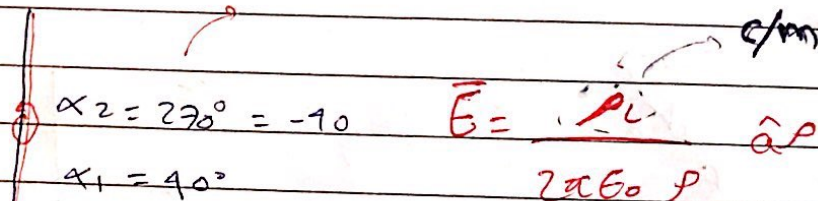 c/m
α2 = 270° = -90 E̅ = ρL / 2πε₀ ρ âρ
α1 = 90°